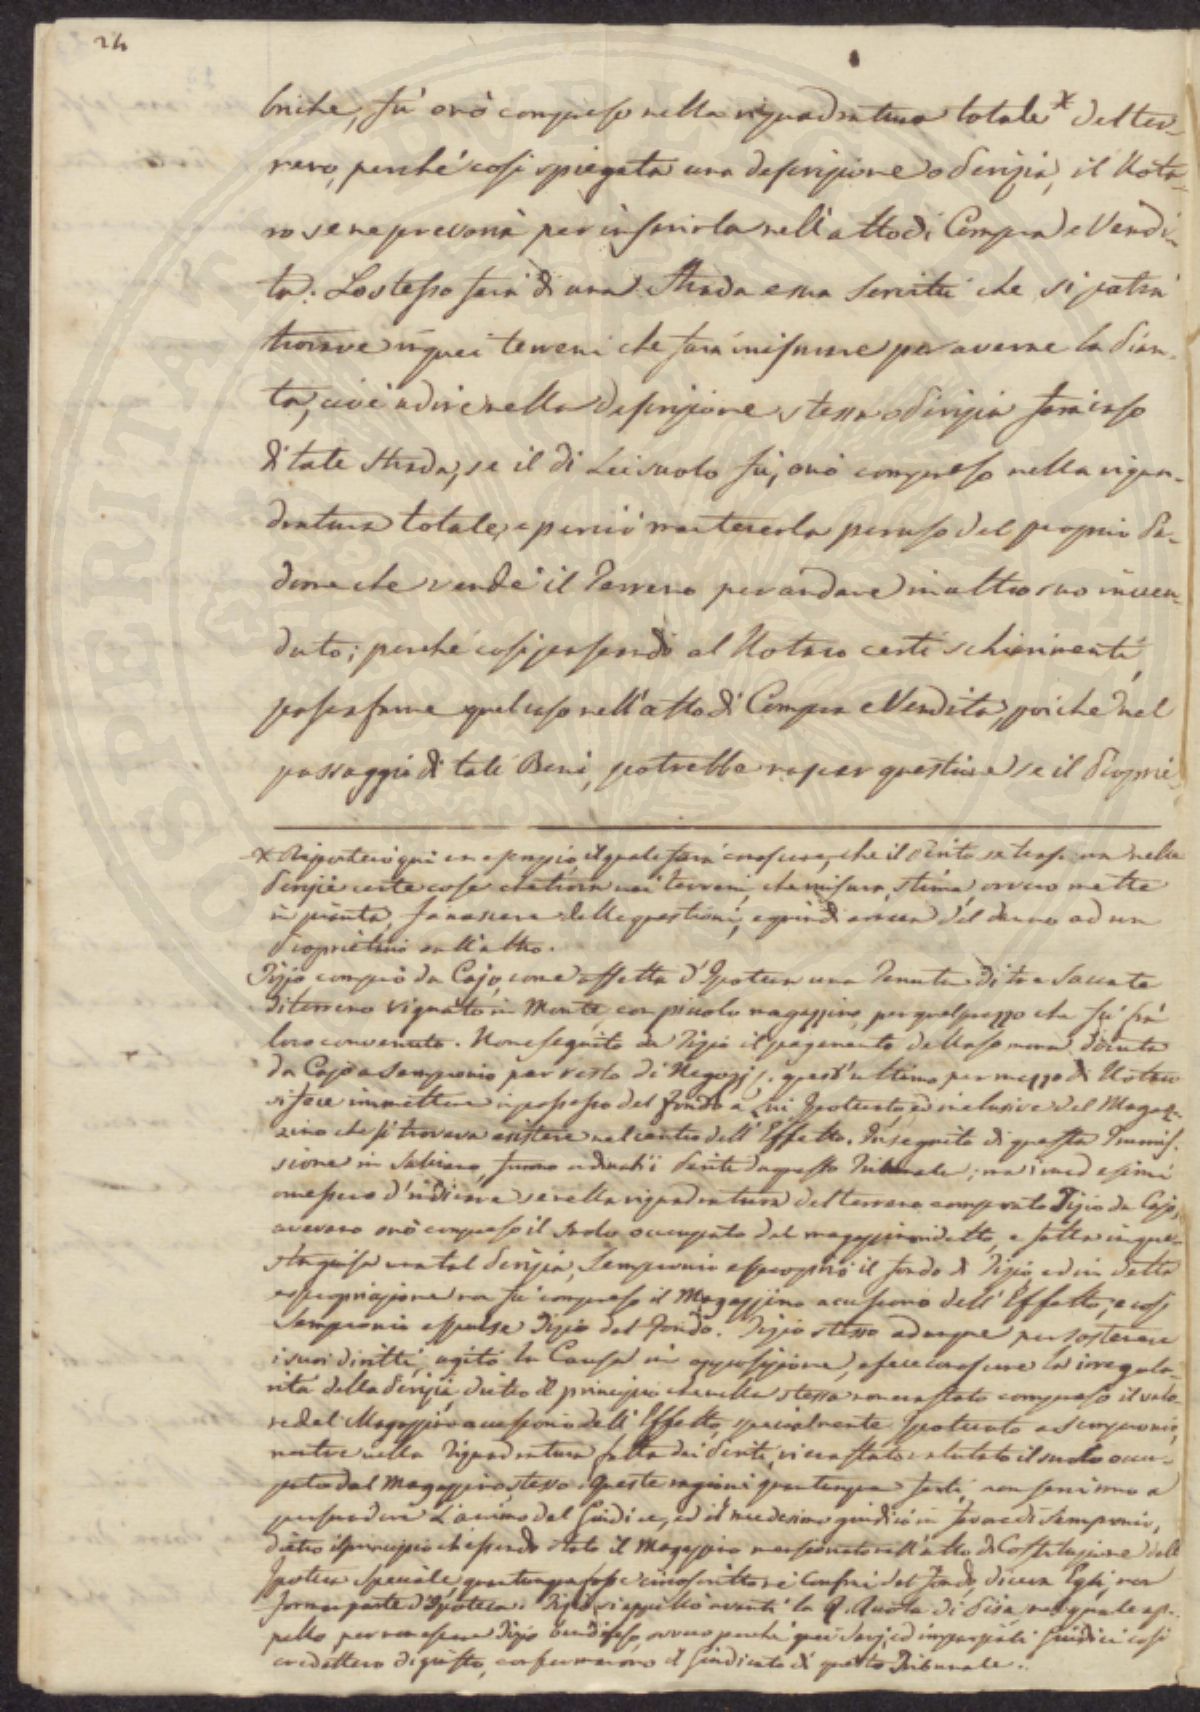 24
briche, fu' o nò compreso nella riquadratura totale x del ter-
reno, perché così spiegata una descrizione o Perizia, il Nota-
ro se ne prevarrà per inserirla nell'atto di Compra e Vendi-
ta. Lo stesso farà di una Strada e una Servitù che si potrà
trovare in quei terreni che farà misurare per averne la Pian-
ta, cioè a dire nella descrizione stessa o Perizia farà caso
di tale Strada, se il di Lei suolo fù, o nò compreso nella riqua-
dratura totale, e perciò mantenerla per uso del proprio Pa-
drone che vendè il Terreno per andare in altro suo inven-
duto; perché così passando al Notaro certi schiarimenti,
possa farne quel uso nell'atto di Compra e Vendita, poiché nel
passaggio di tali Beni, potrebbe nascer questione se il Proprie-
x Riporterò quì un esempio, il quale farà conoscere, che il Perito se trascura nella
Perizia certe cose che trova nei terreni, che misura, stima, ovvero mette
in pianta, fa nascere delle questioni, e quindi arreca del danno ad un
Proprietario o all'altro.
Tizio comprò da Cajo, come affetta d'Ipoteca una Tenuta di tre Saccate
di terreno vignato in Monte, con piccolo magazzino, per quel prezzo che fu frà
loro convenuto. Non eseguito da Tizio il pagamento della somma dovuta
da Cajo a Sempronio per resto di Negozj, quest'ultimo per mezzo di Notaro
si fece immettere in possesso del fondo a Lui Ipotecato, ed inclusive del Magaz-
zino che si trovava esistere nel centro dell'Effetto. In seguito di questa Immis-
sione in Salviano, furono ordinati i Periti da questo Tribunale; ma i medesimi
omessero d'indicare se nella riquadratura del terreno comprato Tizio da Cajo,
avevano o nò compreso il suolo occupato dal magazzino indetto, e fatta in que-
sta guisa una tal Perizia, Sempronio espropriò il fondo di Tizio, ed in detta
espropriazione non fu compreso il Magazzino accessorio dell'Effetto, e così
Sempronio espulse Tizio dal Fondo. Tizio stesso adunque per sostenere
i suoi diritti, agitò la Causa in opposizione, e fece conoscere la irregola-
rità della Perizia, dietro il principio che nella stessa non era stato compreso il valo-
re del Magazzino accessorio dell'Effetto, specialmente Ipotecato a Sempronio,
mentre nella riquadratura fatta dai Periti, vi era stato valutato il suolo occu-
pato dal Magazzino stesso. Queste ragioni quantunque forti, non servirono a
persuadere L'animo del Giudice, ed il medesimo giudicò in favore di Sempronio,
dietro il principio che essendo stato il Magazzino menzionato nell'atto di Costituzione dell'
Ipoteca Speciale, quantunque fosse circoscritto ai Confini del Fondo, diceva Egli, non
formar parte d'Ipoteca. Tizio si appellò avanti la R. Ruota di Pisa, nel quale ap-
pello, per non essere Tizio ben difeso, ovvero perché quei Savj, ed imparziali Giudici così
credettero di giusto, confermarono il Giudicato di questo Tribunale.